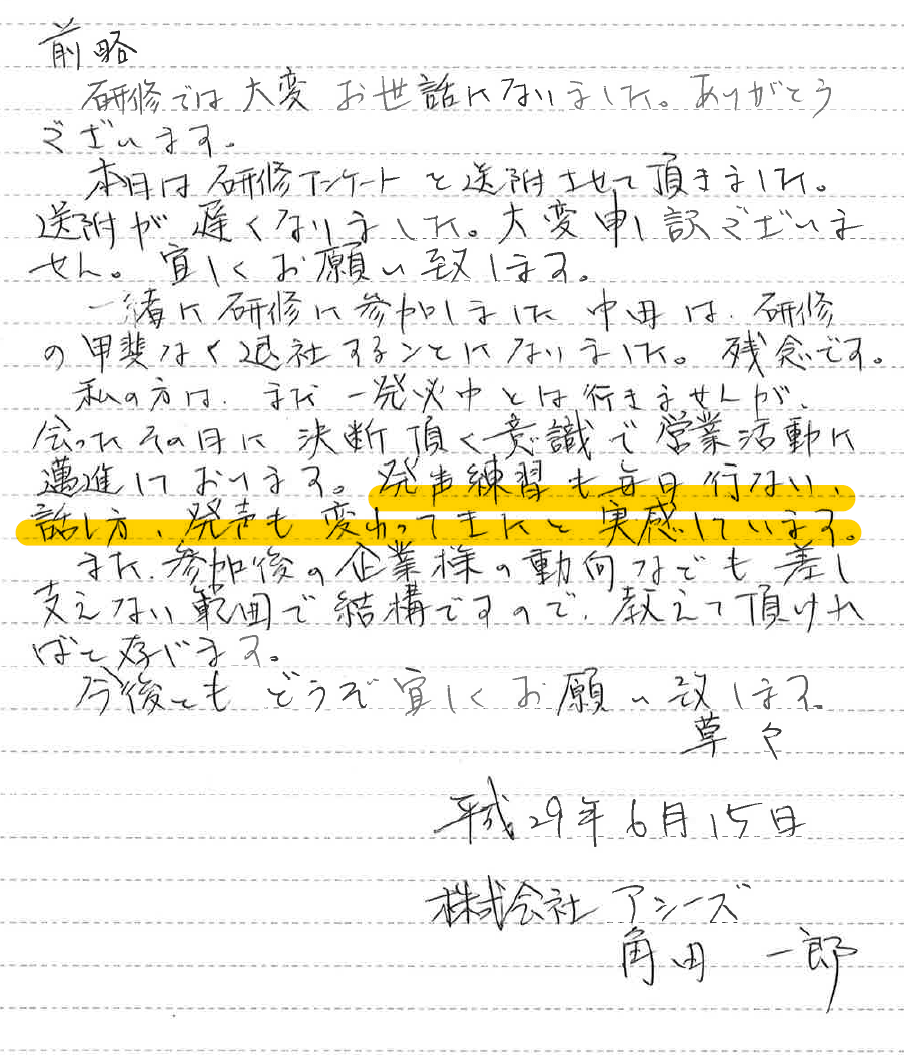 前略
研修では大変お世話になりました。ありがとう
ございます。
本日は研修アンケートを送附させて頂きました。
送附が遅くなりました。大変申し訳ございま
せん。宜しくお願い致します。
一緒に研修に参加しました中田は、研修
の甲斐なく退社することになりました。残念です。
私の方は、まだ一発必中とは行きませんが、
会ったその日に決断頂く意識で営業活動に
邁進しております。発声練習も毎日行ない、
話し方、発声も変わってきたと実感しています。
また、参加後の企業様の動向なども差し
支えない範囲で結構ですので、教えて頂けれ
ばと存じます。
今後ともどうぞ宜しくお願い致します。
草々
平成29年6月15日
株式会社アシーズ
角田 一郎